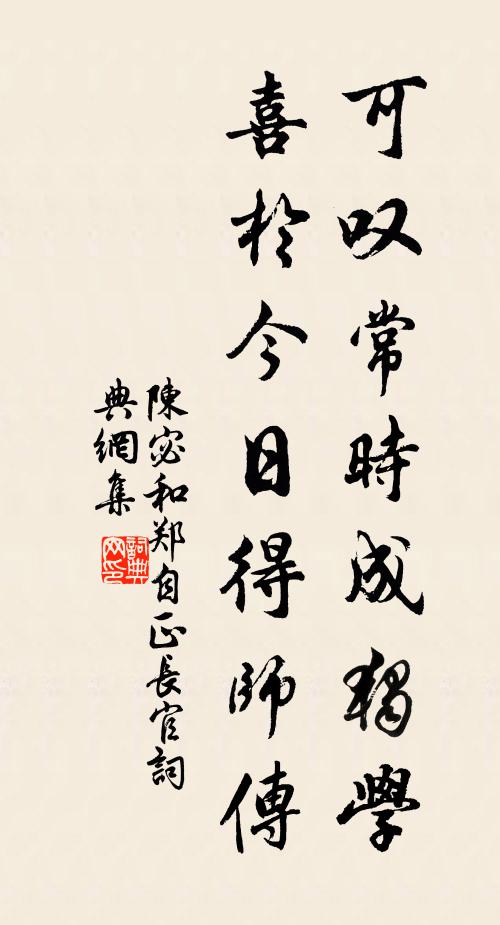 可叹常時成獨學
喜於今日得師傳
陳宓和郑自正長官詞
典網集
詞典网印